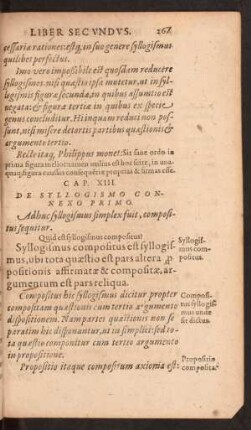 LIBER SECVNDVS. 267
cessaria ratione: estq́; in suo genere syllogismus
quilibet perfectus.
Imo vero impossibile est quosdam reducere
syllogismos, nisi quæstio ipsa mutetur, ut in syl-
logismis figuræ secundæ, in quibus assumtio est
negata: & figuræ tertiæ in quibus ex specie
genus concluditur. Hi inquam reduci non pos-
sunt, nisi misere detortis partibus quæstionis &
argumento tertio.
Recte itaq; Philippus monet: sine ordo in
prima figura
quaq; figura causas consequentiæ proprias & firmas esse.
CAP. XIII.
DE SYLLOGISMO CON-
NEXO PRIMO.
Adhuc syllogismus simplex fuit, composi-
tus sequitur.
Quid est syllogismus compositus?
Syllogismus compositus est syllogis-
mus, ubi tota quæstio est pars altera
propositionis affirmatæ & compositæ, ar-
gumentum est pars reliqua.
Syllogis-
mus com-
positus.
Compositus hic syllogismus dicitur propter
compositam quæstionis cum tertio argumento
dispositionem. Nam partes quæstionis non se-
paratim hic disponuntur, ut in simplici: sed to-
ta quæstio componitur cum tertio argumento
in propositione.
Composi-
tus syllogis-
mus unde
sic dictus.
Propositio itaque compositorum axioma est:
Propositio
composita.